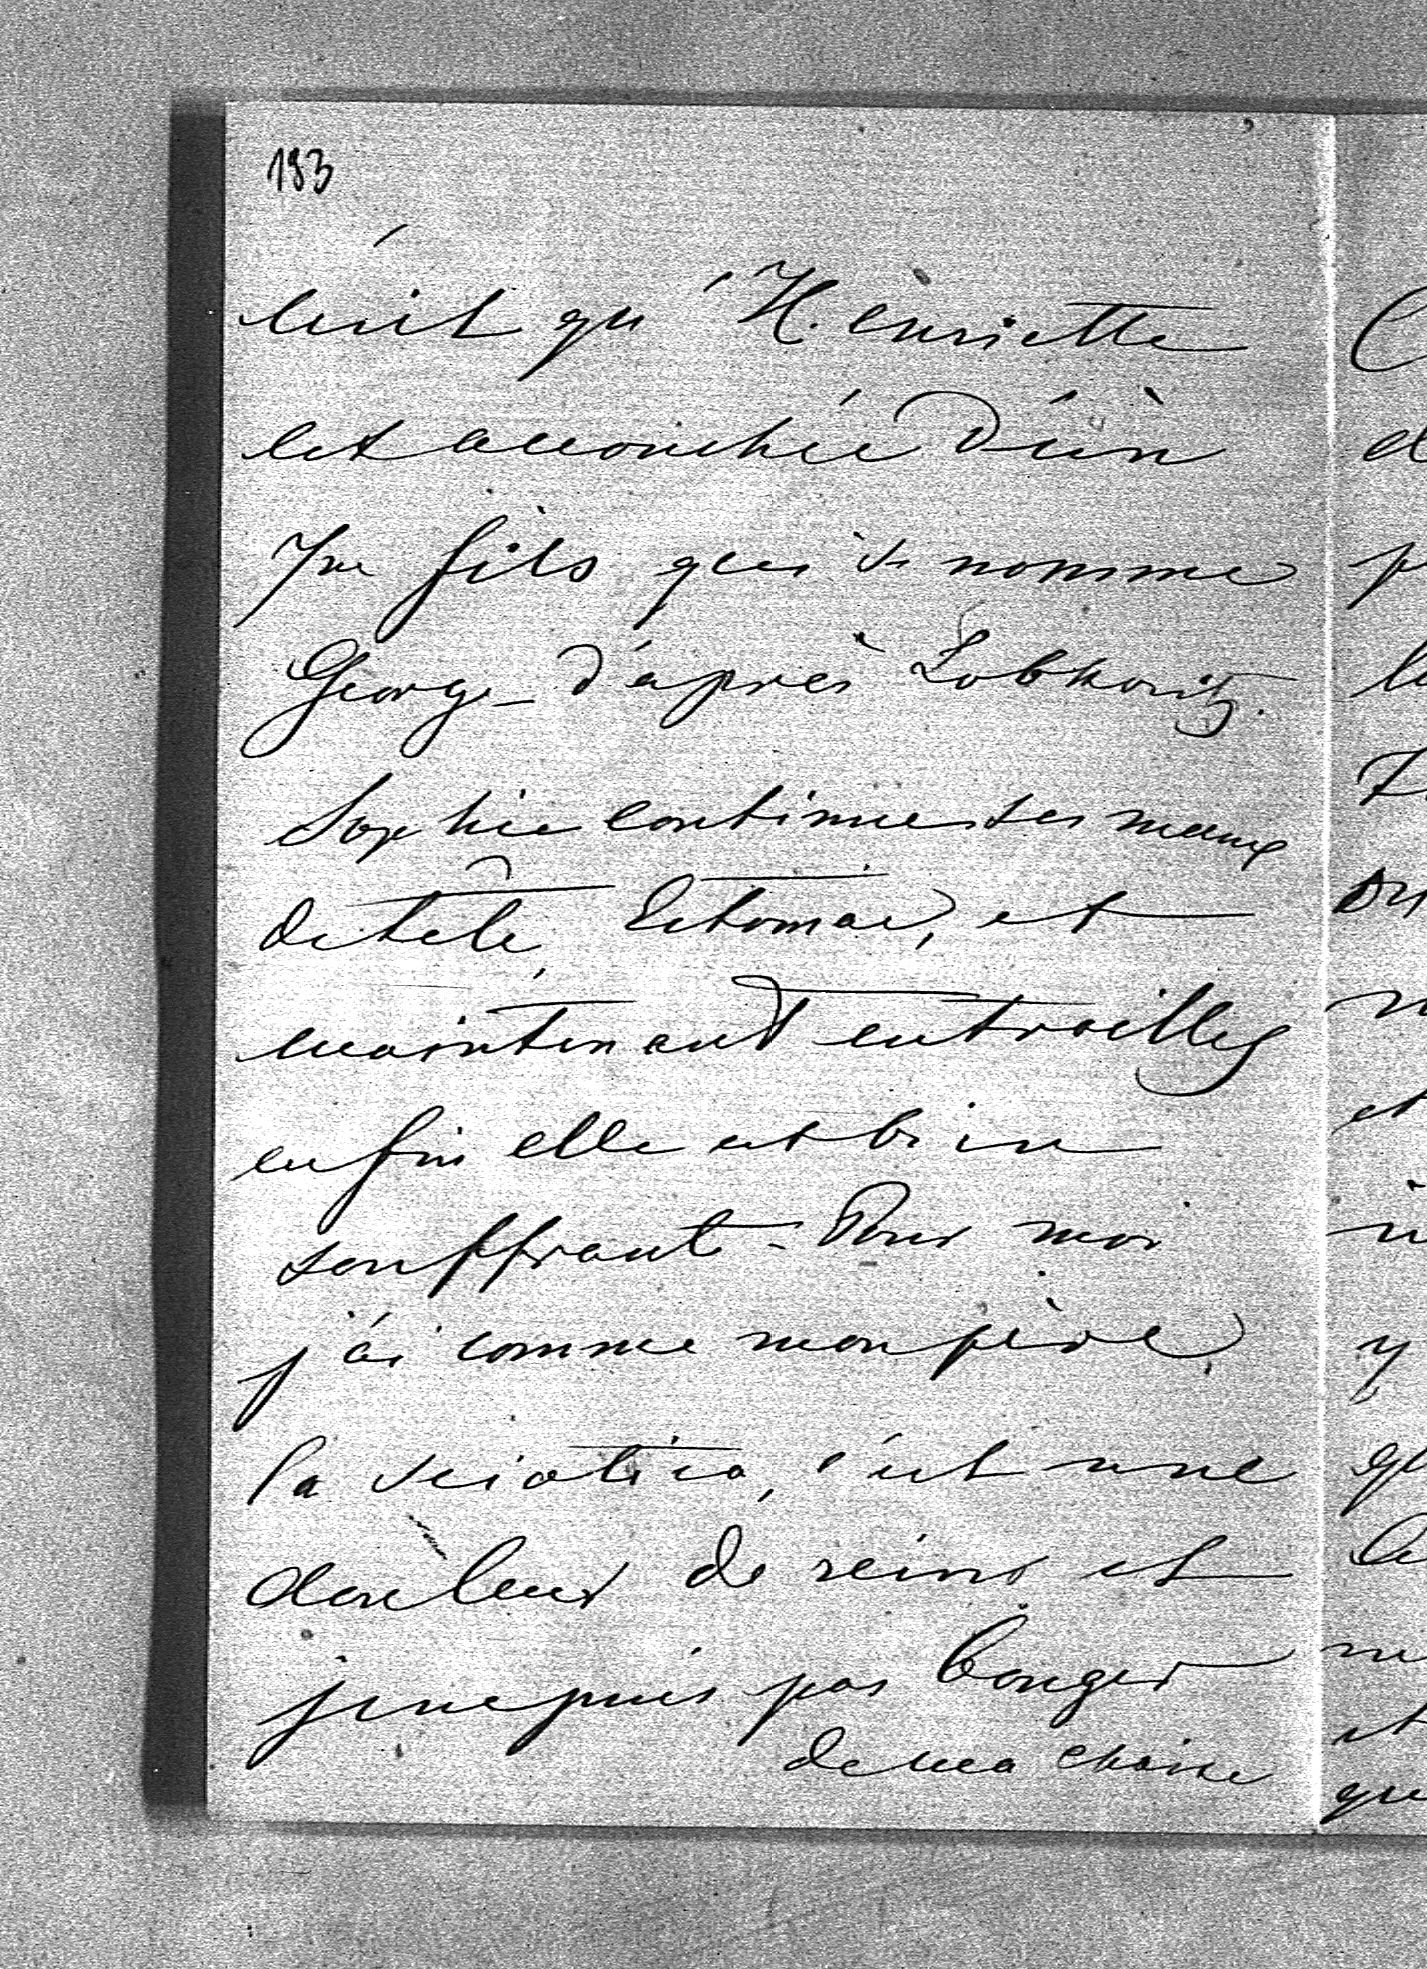 183
crit qu'Henriette
est accouchée d'un
7me fils qui se nomme
George d'après Lobkowitz.
Sophie continue ses maux
de tête, estomac, et
maintenant entrailles
enfin elle est bien
souffrante - Pour moi
j'ai comme mon père
la sciatica, c'est une
douleur de reins et
je ne puis pas bouger
de ma chaise